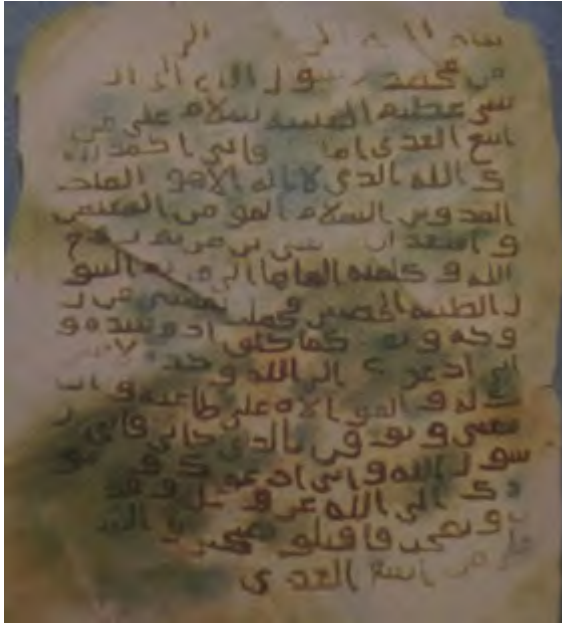 بسم الله الر الر
من محمد رسول الله الى ال
شي عظيم الحبشة سلام على من
اتبع الهدى اما فاني احمد الي
ك الله الذي لا اله الا هو الملك
القدوس السلام المومن المهيمن
و اشهد ان عيسى بن مريم روح
الله و كلمته القاها الى مريم البتو
ل الطيبة الحصينة فحملت بعيسى من ر
وحه و نفخه كما خلق ادم بيده و
اني ادعوك الى الله وحده لا
يك له و الموالاة على طاعته و ان
تتبعني و توقن بالذي جاني فاني ر
سول الله و اني ادعوك و
دك الى الله عز و جل و قد
و نصحت فاقبلوا
على من اتبع الهدى